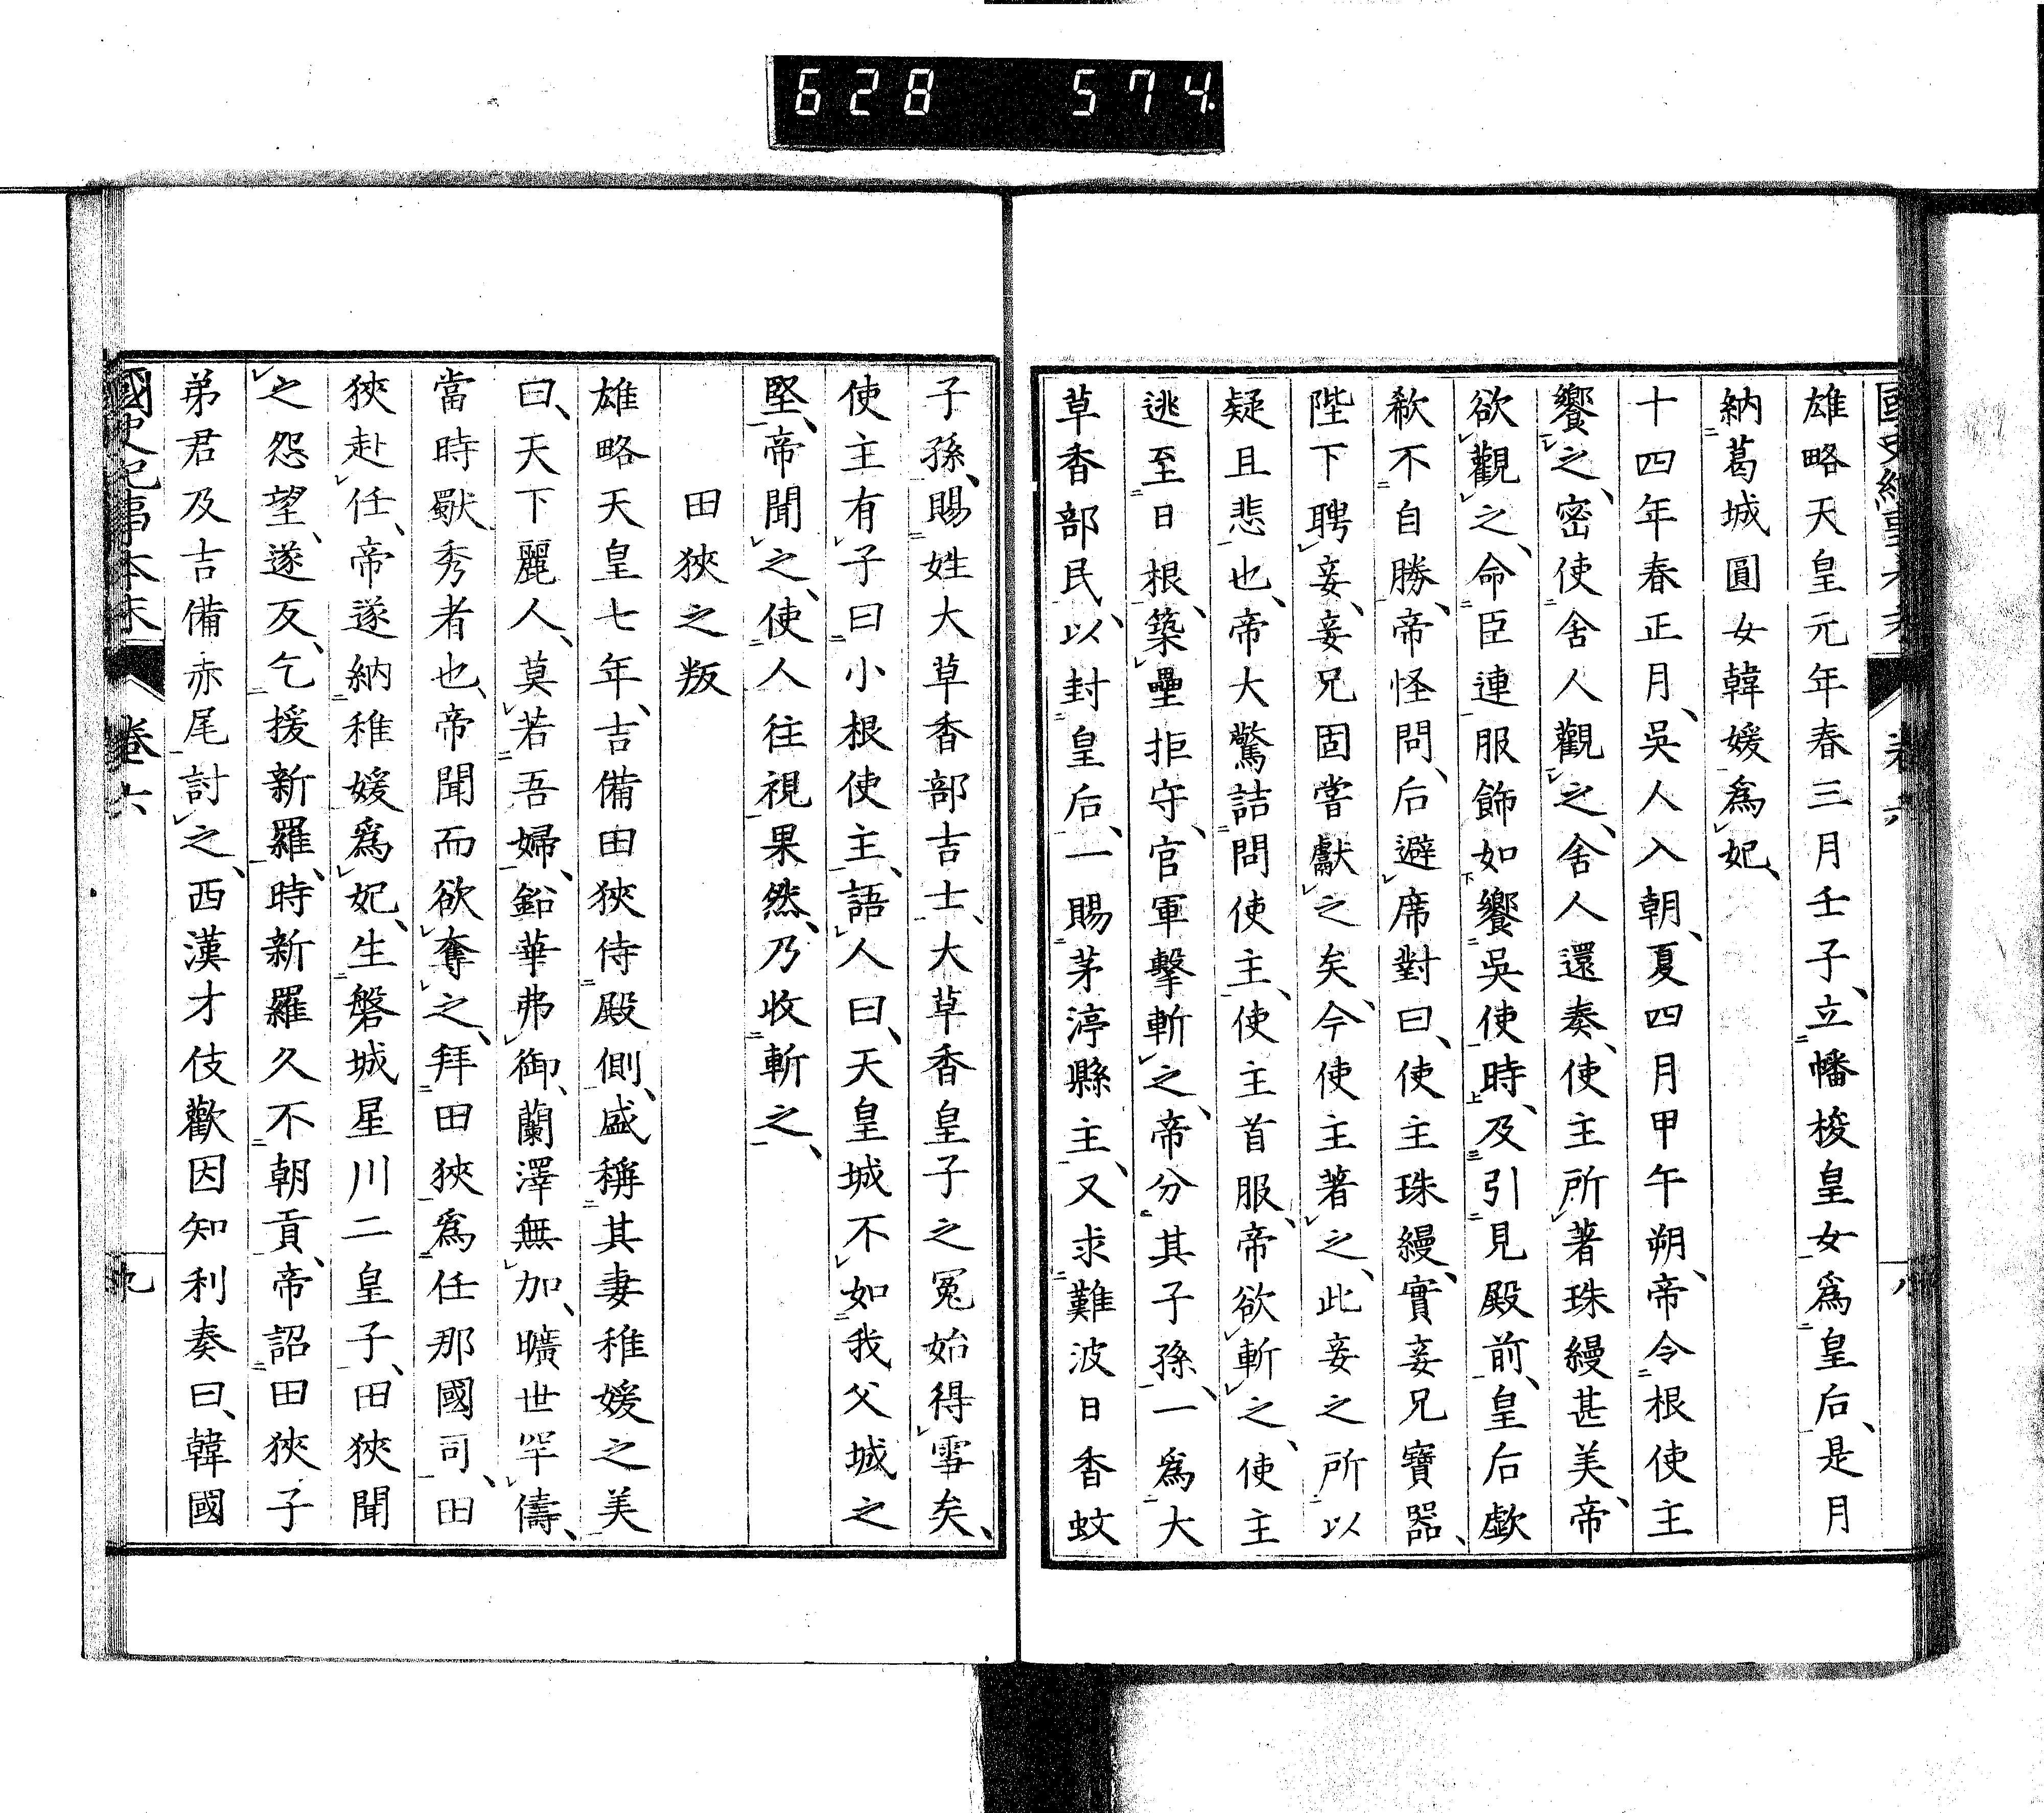 628 574.
國史紀事本末 卷六 八
雄略天皇元年春三月壬子、立幡梭皇女爲皇后、是月
納葛城圓女韓媛爲妃、
十四年春正月、吳人入朝、夏四月甲午朔、帝令根使主
饗之、密使舍人觀之、舍人還奏、使主所著珠縵甚美、帝
欲觀之、命臣連服飾如饗吳使時、及引見殿前、皇后歔
欷不自勝、帝怪問、后避席對曰、使主珠縵、實妾兄寶器、
陛下聘妾、妾兄固嘗獻之矣、今使主著之、此妾之所以
疑且悲也、帝大驚詰問使主、使主首服、帝欲斬之、使主
逃至日根、築壘拒守、官軍擊斬之、帝分其子孫、一爲大
草香部民、以封皇后、一賜茅渟縣主、又求難波日香蚊
子孫、賜姓大草香部吉士、大草香皇子之冤始得雪矣、
使主有子曰小根使主、語人曰、天皇城不如我父城之
堅、帝聞之、使人往視果然、乃收斬之、
田狹之叛
雄略天皇七年、吉備田狹侍殿側、盛稱其妻稚媛之美
曰、天下麗人、莫若吾婦、鉛華弗御、蘭澤無加、曠世罕儔、
當時歇秀者也、帝聞而欲奪之、拜田狹爲任那國司、田
狹赴任、帝遂納稚媛爲妃、生磐城星川二皇子、田狹聞
之怨望、遂反、乞援新羅、時新羅久不朝貢、帝詔田狹子
弟君及吉備赤尾討之、西漢才伎歡因知利奏曰、韓國
國史紀事本末 卷六 九